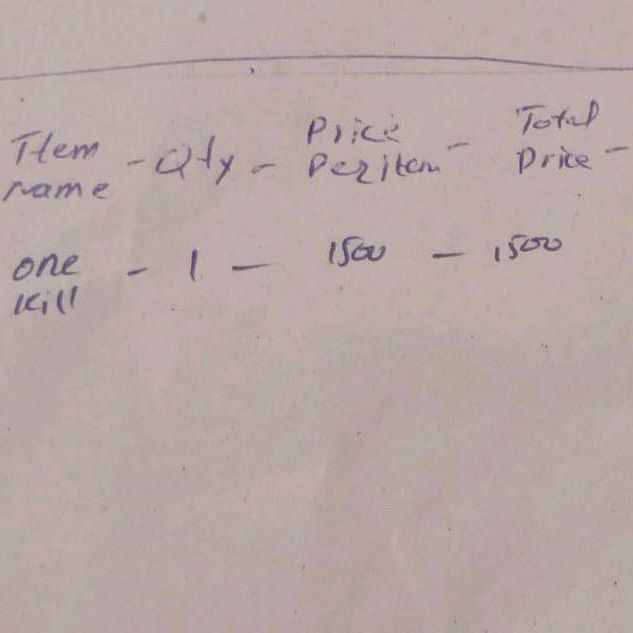 Item name - Qty - Price Per item - Total Price -
one kill - 1 - 1500 - 1500